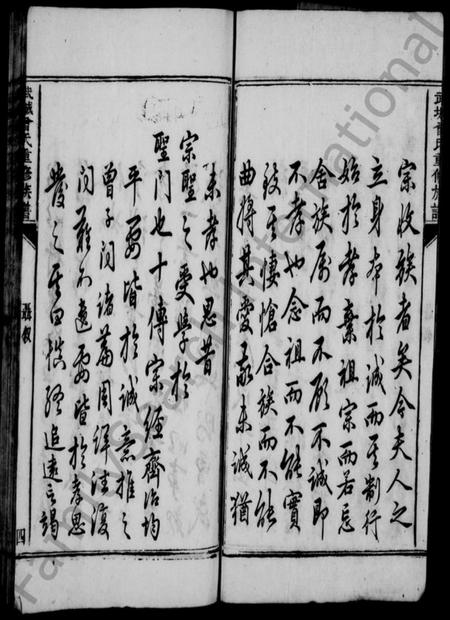 宗收族者矣今夫人之
立身本於誠而其制行
始於孝棄祖宗而若忘
舍族屬而不顧不誠即
不孝也念祖而不能實
致其悽愴合族而不能
曲將其愛敬未誠猶
未孝也思昔
宗聖之受學於
聖門也十傳宗經齊治均
平要皆於誠意推之
曾子問諸篇周詳往復
問難不遠要皆於孝思
發之其曰慎終追遠之謁
武城曾氏重修族譜
聶叙
四
武城曾氏重修族譜
FamilySearch International